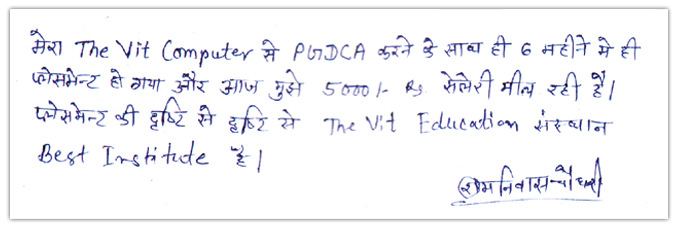 मेरा The Vit Computer से PGDCA करने के साथ ही 6 महीने मे ही
प्लेसमेन्ट हो गया और आज मुझे 5000/- Rs. सेलेरी मील रही है।
प्लेसमेन्ट की दृष्टि से दृष्टि से The Vit Education संस्थान
Best Institude है।
रामनिवास चौधरी